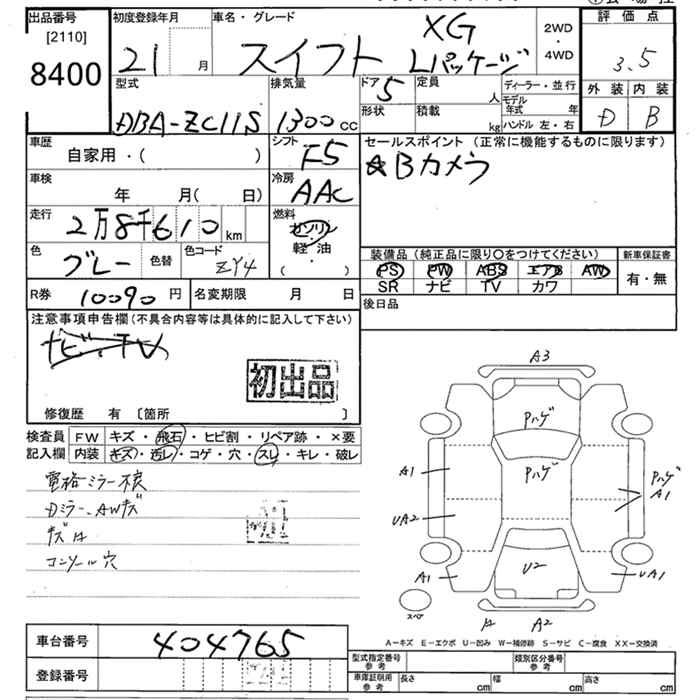 出品番号
[2110]
8400
初度登録年月
21 月
車名・グレード
スイフト XG Lパッケージ
2WD
・
4WD
評価点
3.5
外装 内装
D B
型式
DBA-ZC11S
排気量
1300 cc
ドア 5
定員 人
形状
積載 kg
ディーラー・並行
モデル年式 年
ハンドル 左・右
車歴
自家用・( )
シフト
F5
セールスポイント (正常に機能するものに限ります)
☆Bカメラ
車検
年 月( 日)
冷房
AAC
走行
2万8千610 km
燃料
ガソリン
軽・油
( )
色
グレー
色替
色コード
ZY4
装備品 (純正品に限り○をつけてください)
PS PW ABS エアB AW
SR ナビ TV カワ
新車保証書
有・無
R券 10090 円
名変期限 月 日
後日品
注意事項申告欄(不具合内容等は具体的に記入して下さい)
ナビ・TV
初出品
修復歴 有 〔箇所 〕
検査員 FW キズ・飛石・ヒビ割・リペア跡・×要
記入欄 内装 キズ・汚レ・コゲ・穴・スレ・キレ・破レ
電格ミラー不良
Dミラー、AWキズ
キズ H
コンソール穴
A3
Pハゲ
Pハゲ
A1
Pハゲ
A1
UA2
U2
A1
UA1
スペア
A2
A-キズ E-エクボ U-凹み W-補修跡 S-サビ C-腐食 XX-交換済
車台番号 404765
登録番号
型式指定番号
参考
類別区分番号
参考
車庫証明用
参考
長さ cm 幅 cm 高さ cm